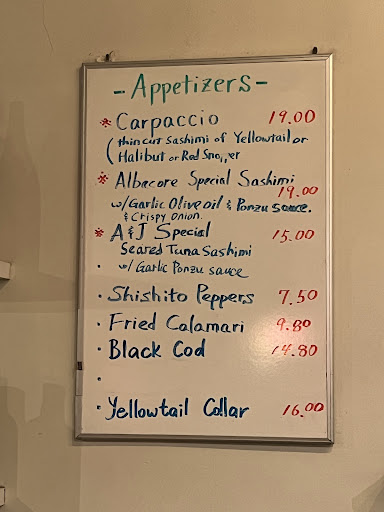 - Appetizers -
* Carpaccio 19.00
( thin cut Sashimi of Yellowtail or
Halibut or Red Snapper
* Albacore Special Sashimi
19.00
w/ Garlic Olive oil & Ponzu sauce.
& Crispy onion.
* A&J Special 15.00
Seared Tuna Sashimi
· w/ Garlic Ponzu sauce
· Shishito Peppers 7.50
· Fried Calamari 9.80
· Black Cod 14.80
·
· Yellowtail Collar 16.00